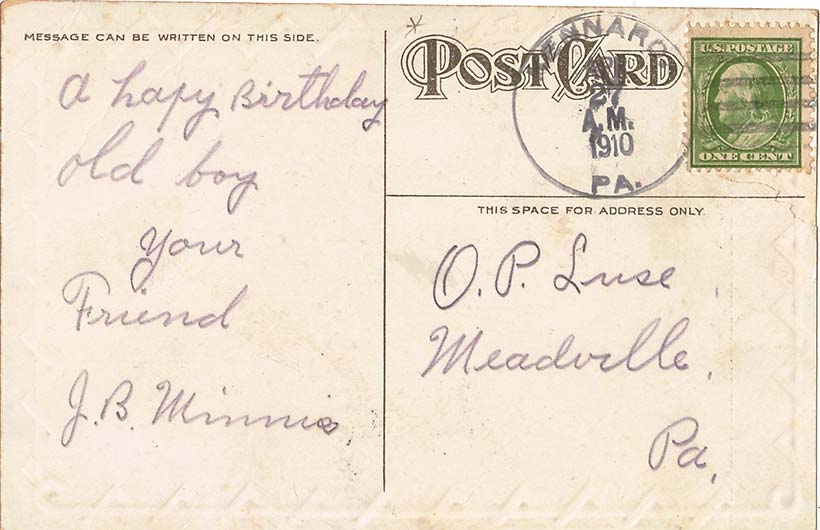 MESSAGE CAN BE WRITTEN ON THIS SIDE.
A hapy Birthday
old boy
your
Friend
J.B. Minnis
POST CARD
KENNARD
27
A.M.
1910
PA.
U.S. POSTAGE
ONE CENT
THIS SPACE FOR ADDRESS ONLY.
O.P. Luse,
Meadville,
Pa,